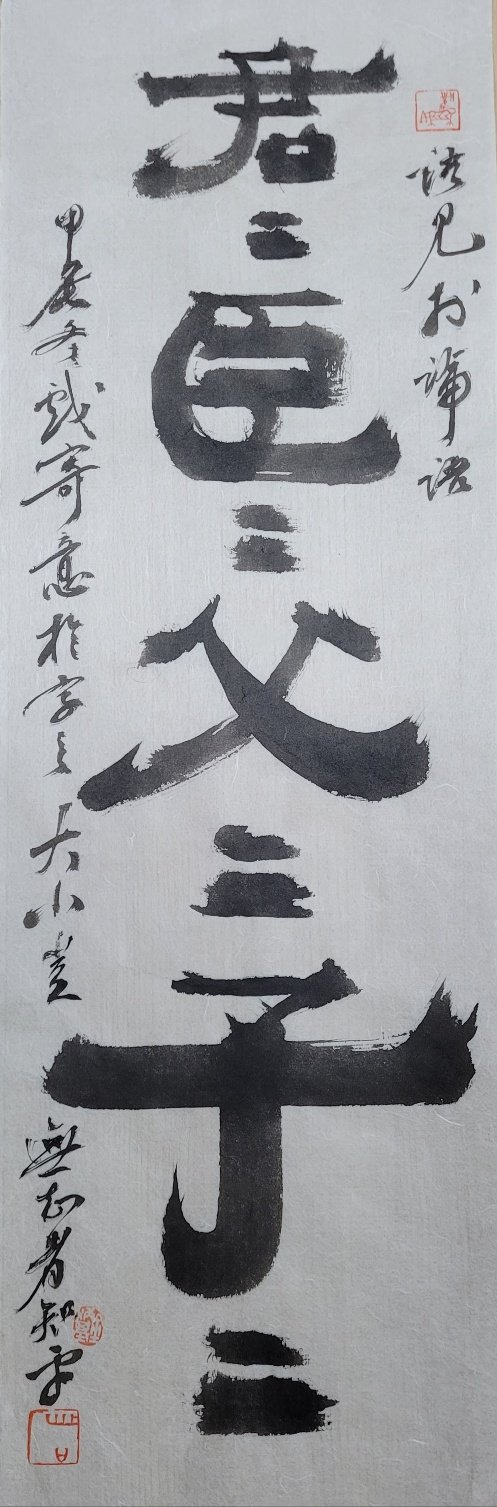 語見於論語
君〻臣〻父〻子〻
甲辰冬戲寄意於字之大小豈無知者知乎